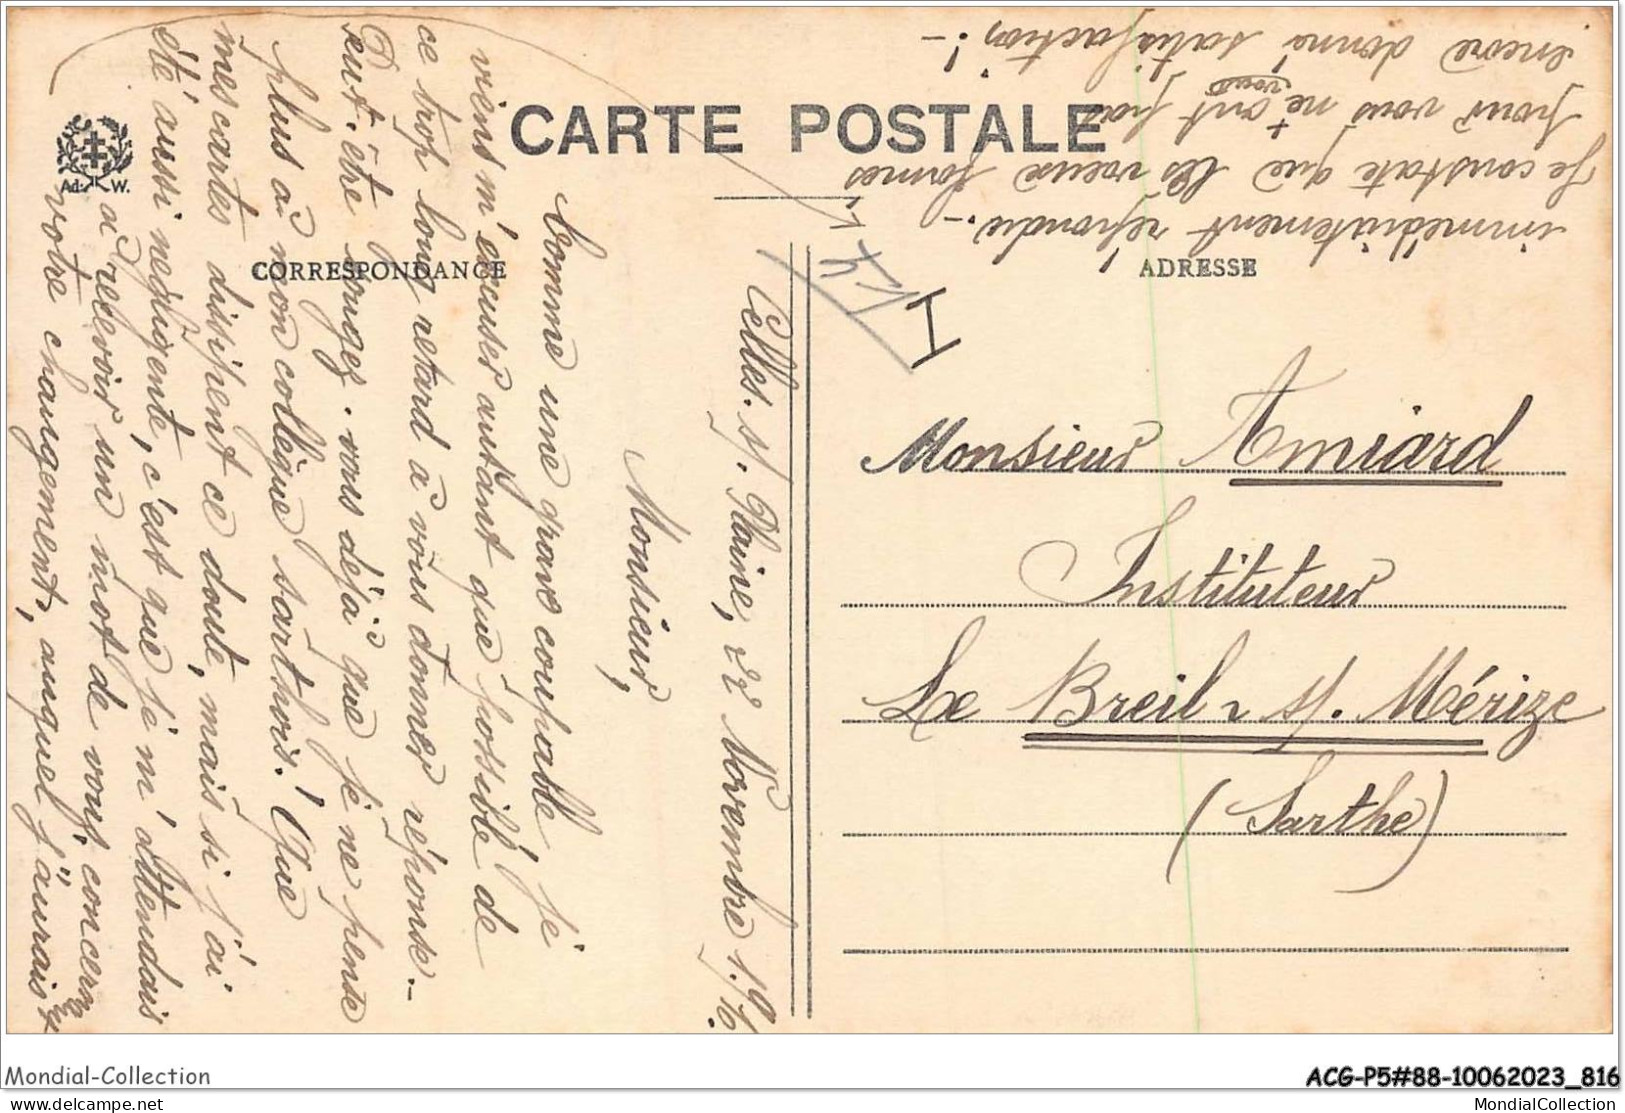 CARTE POSTALE
CORRESPONDANCE
ADRESSE
Ad. W.
Celles. s/. Plaine, 22 Novembre 1.916.
Monsieur,
Comme une grave coupable, je
viens m'excuser autant que possible de
ce trop long retard à vous donner réponse.-
Peut-être songez-vous déjà que je ne pense
plus à mon collègue sarthois! Que
mes cartes dissipent ce doute, mais si j'ai
été aussi négligente, c'est que je m'attendais
à recevoir un mot de vous, concern^t
votre changement, auquel j'aurais
immédiatement répondu.-
Je constate que les vœux formés
pour vous ne vous ont pas
encore donné satisfaction!-
I
14
Monsieur Amiard
Instituteur
Le Breil s/. Mérize
(Sarthe)
Mondial-Collection
ACG-P5#88-10062023_816
delcampe.net
MondialCollection